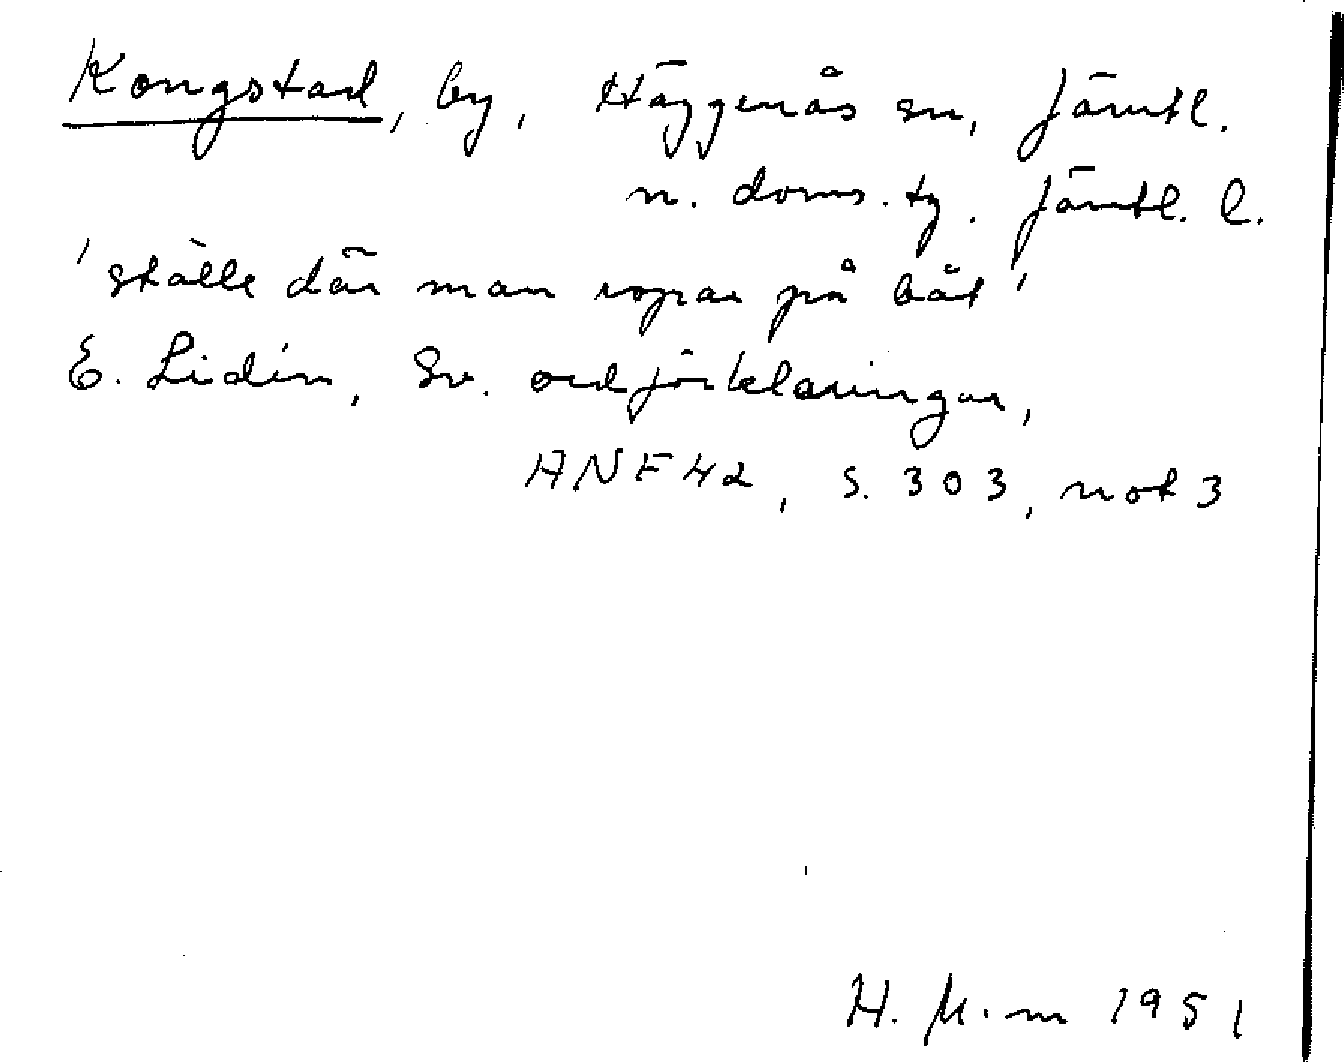 Kongstad, by, Häggenås sn, Jämtl.
n. doms. tg. Jämtl. l.
'ställe där man ropar på båt'
E. Lidén, Sv. ordförklaringar,
ANF 42, s. 303, not 3
H. M-m 1951